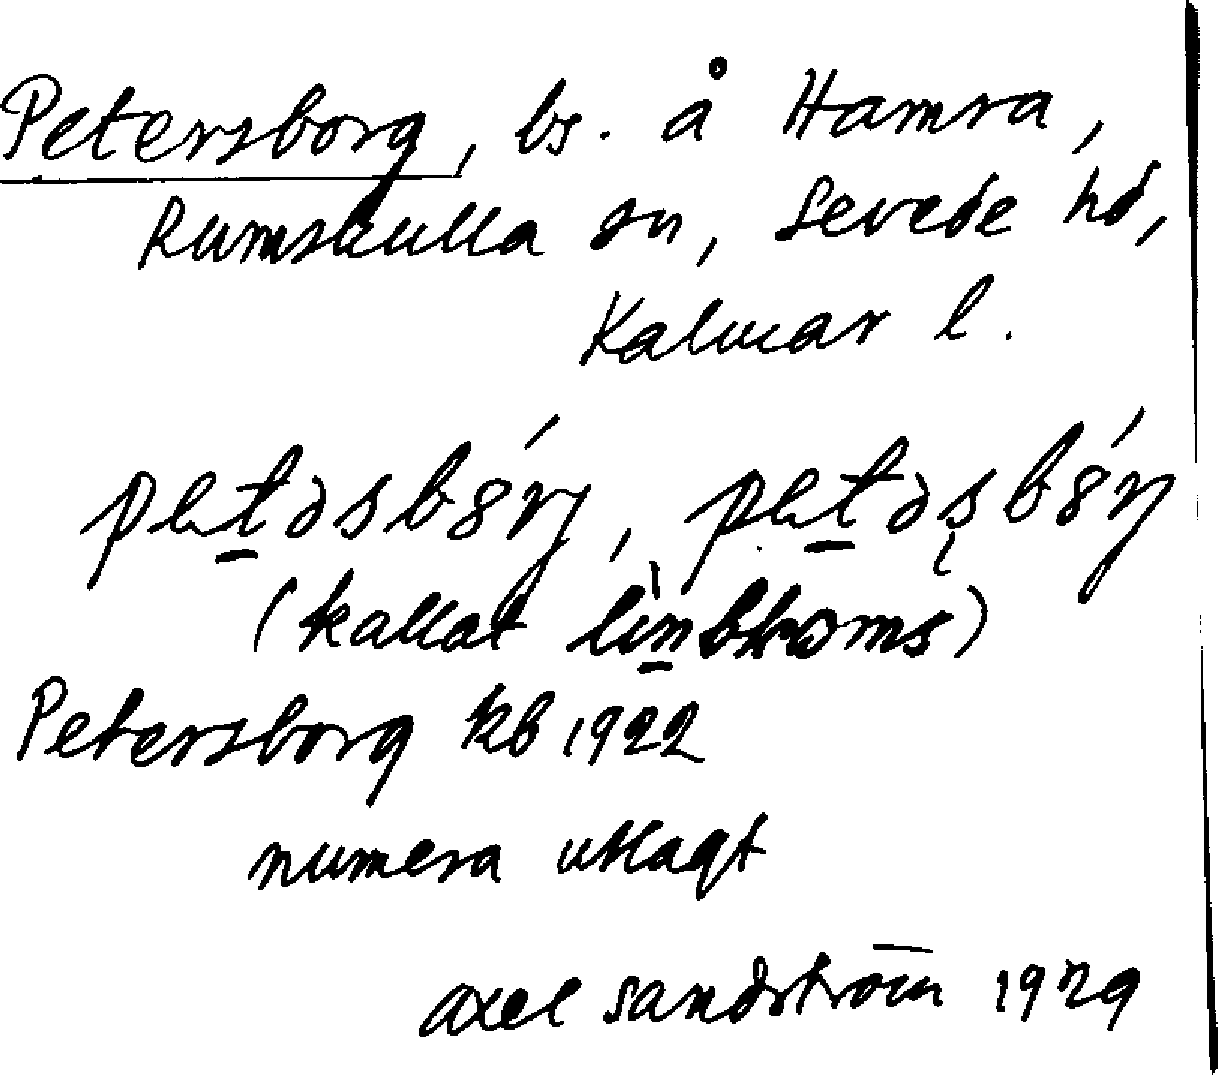 Petersborg, bs. å Hamra,
Rumskulla sn, Sevede hd,
Kalmar l.
(kallat
Petersborg kb 1922
numera utlagt
Axel Sandström 1929